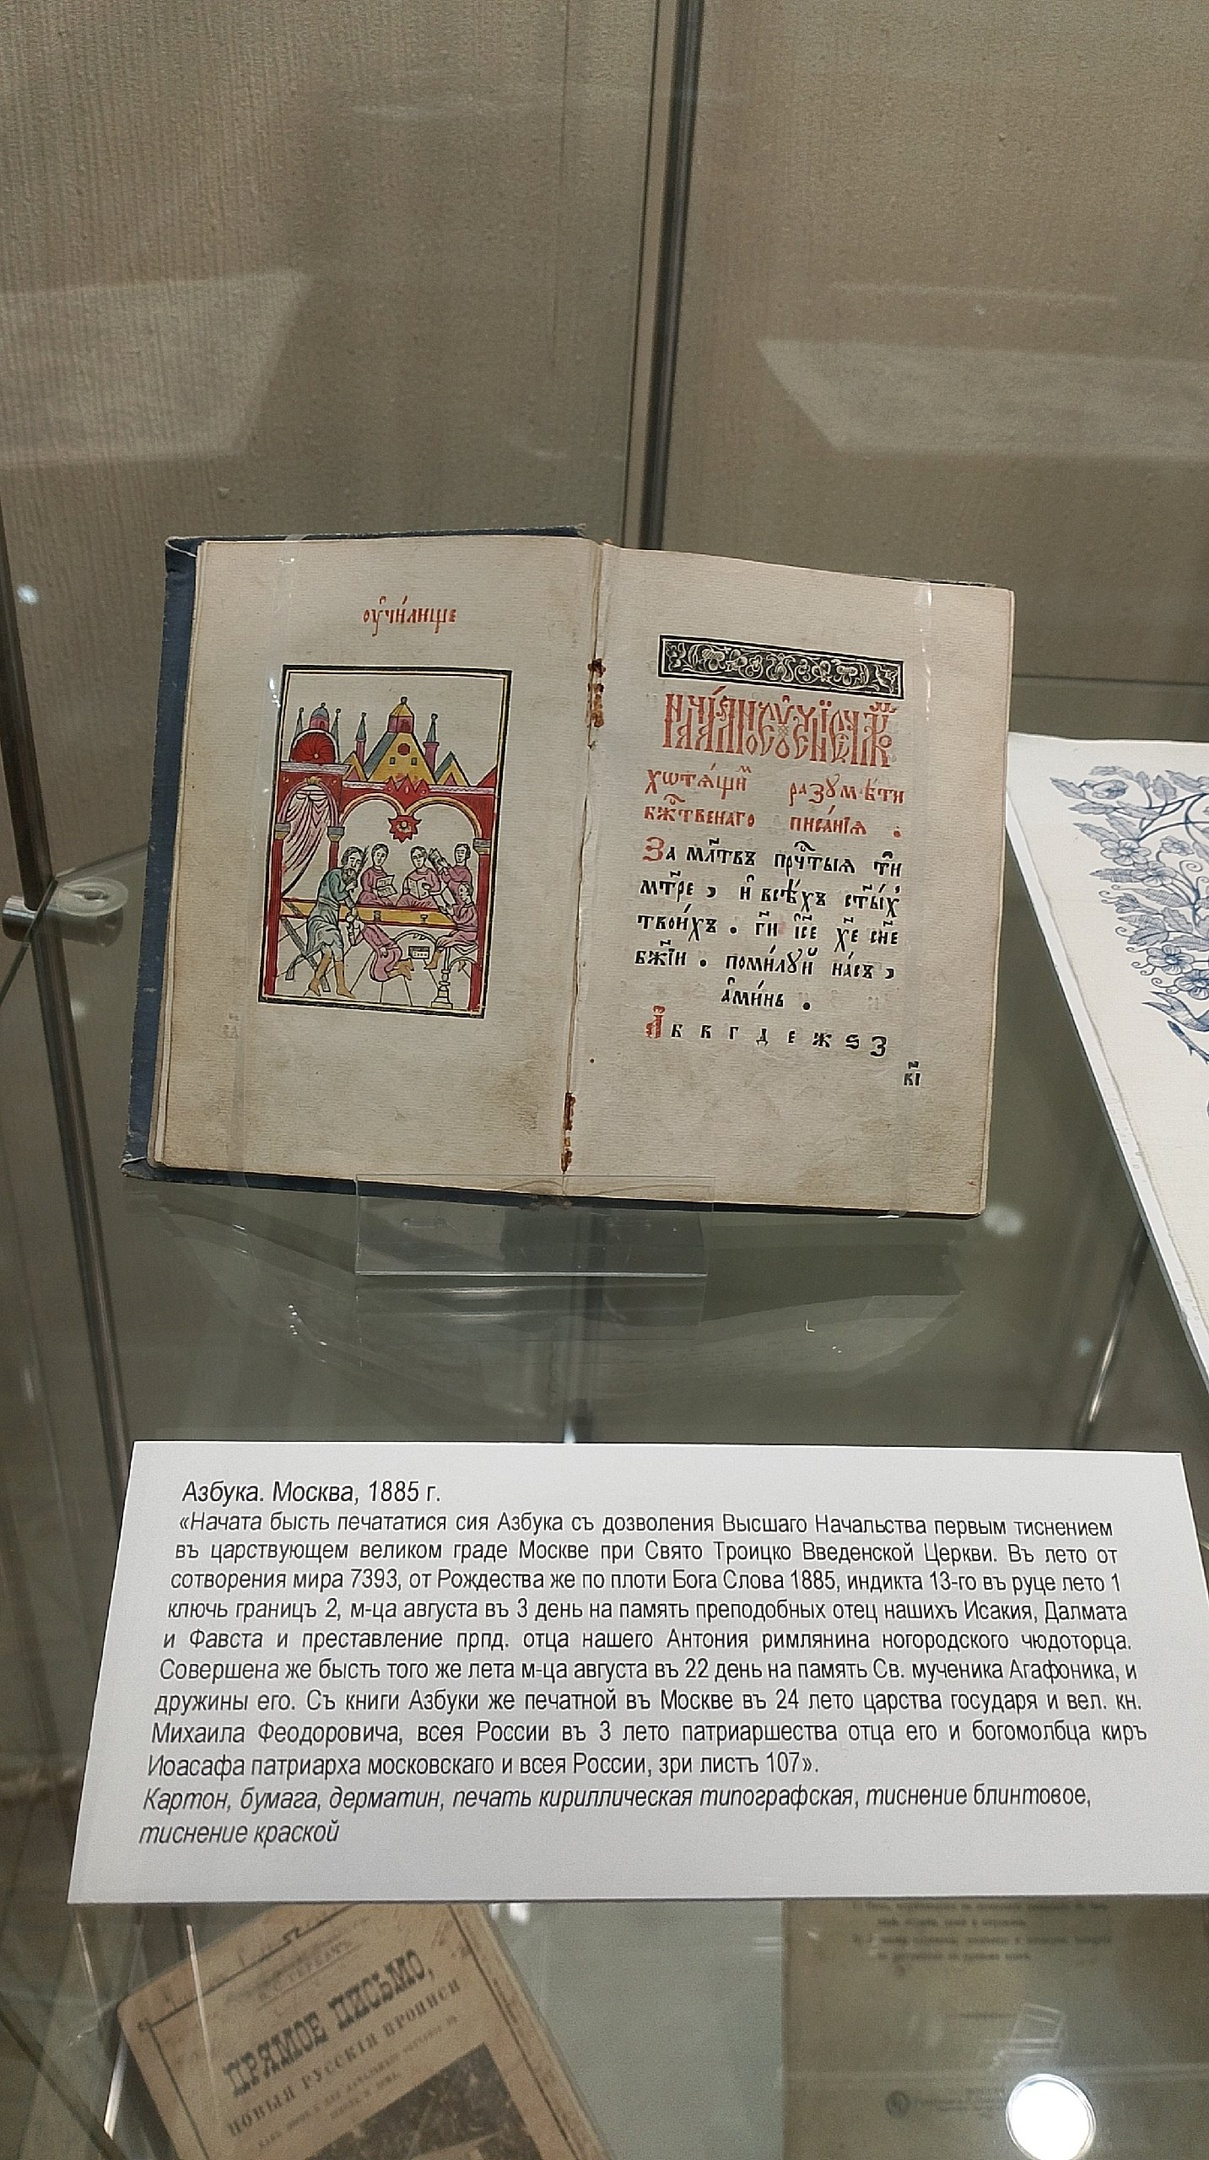 оу҆чи́лище
Нача́льное оуче́нїе человѣ́кѡмъ
хѡтѧ́щимъ разꙋмѣ́ти
бж҃твенаго писа́нїѧ .
За мл҃твъ прⷱ҇тыѧ тѝ
мт҃ре , и҆ всѣ́хъ ст҃ы́хъ
твои́хъ . гд҃и і҆с҃е хр҃е сн҃е
бж҃їи . поми́лꙋй на́съ ,
а҆ми́нь .
А б в г д е ж ѕ з
к҃і
Азбука. Москва, 1885 г.
«Начата бысть печататися сия Азбука съ дозволения Высшаго Начальства первым тиснением
въ царствующем великом граде Москве при Свято Троицко Введенской Церкви. Въ лето от
сотворения мира 7393, от Рождества же по плоти Бога Слова 1885, индикта 13-го въ руце лето 1
ключь границъ 2, м-ца августа въ 3 день на память преподобных отец нашихъ Исакия, Далмата
и Фавста и преставление прпд. отца нашего Антония римлянина ногородского чюдоторца.
Совершена же бысть того же лета м-ца августа въ 22 день на память Св. мученика Агафоника, и
дружины его. Съ книги Азбуки же печатной въ Москве въ 24 лето царства государя и вел. кн.
Михаила Феодоровича, всея России въ 3 лето патриаршества отца его и богомолбца киръ
Иоасафа патриарха московскаго и всея России, зри листъ 107».
Картон, бумага, дерматин, печать кириллическая типографская, тиснение блинтовое,
тиснение краской
ПРЯМОЕ ПИСЬМО,
НОВЫЯ РУССКІЯ ПРОПИСИ